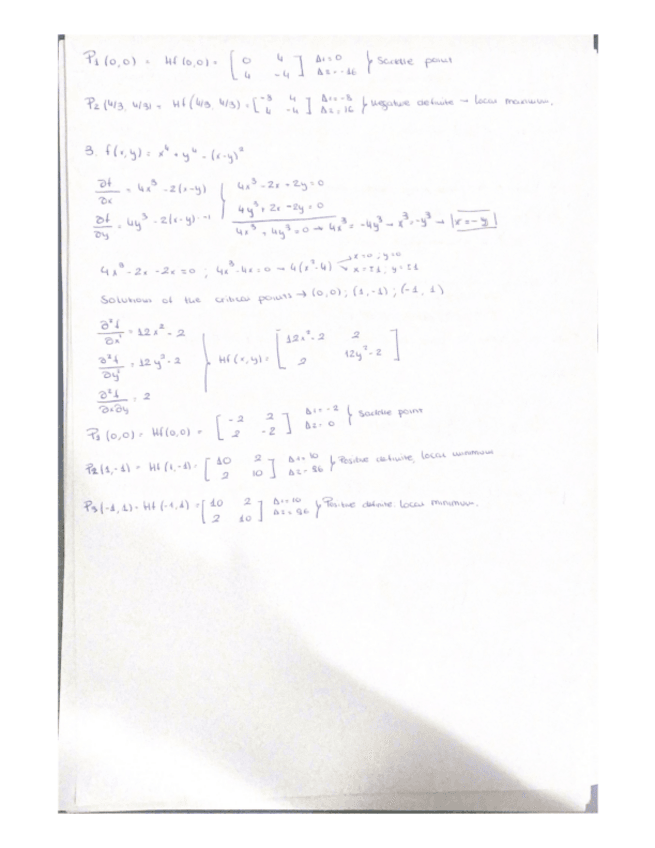 P1 (0,0) = Hf (0,0) = [ 0 4 4 -4 ] Δ1=0 Δ2=-16 } Saddle point
P2 (4/3, 4/3) = Hf (4/3, 4/3) = [ -8 4 4 -4 ] Δ1=-8 Δ2=16 } Negative definite → Local maximum.
3. f(x,y) = x⁴ + y⁴ - (x-y)²
∂f/∂x = 4x³ - 2(x-y) } 4x³ - 2x + 2y = 0
∂f/∂y = 4y³ - 2(x-y)·-1 } 4y³ + 2x - 2y = 0
4x³ + 4y³ = 0 → 4x³ = -4y³ → x³ = -y³ → x = -y
4x³ - 2x - 2x = 0 ; 4x³ - 4x = 0 → 4(x³-4) x=0, y=0
x = ±1, y = ±1
Solutions of the critical points → (0,0) ; (1,-1) ; (-1, 1)
∂²f/∂x² = 12x² - 2
∂²f/∂y² = 12y² - 2 } Hf (x,y) = [ 12x²-2 2 2 12y²-2 ]
∂²f/∂x∂y = 2
P1 (0,0) = Hf (0,0) = [ -2 2 2 -2 ] Δ1=-2 Δ2=0 } Saddle point
P2 (1,-1) = Hf (1,-1) = [ 10 2 2 10 ] Δ1=10 Δ2=96 } Positive definite, local minimum
P3 (-1,1) = Hf (-1,1) = [ 10 2 2 10 ] Δ1=10 Δ2=96 } Positive definite. Local minimum.